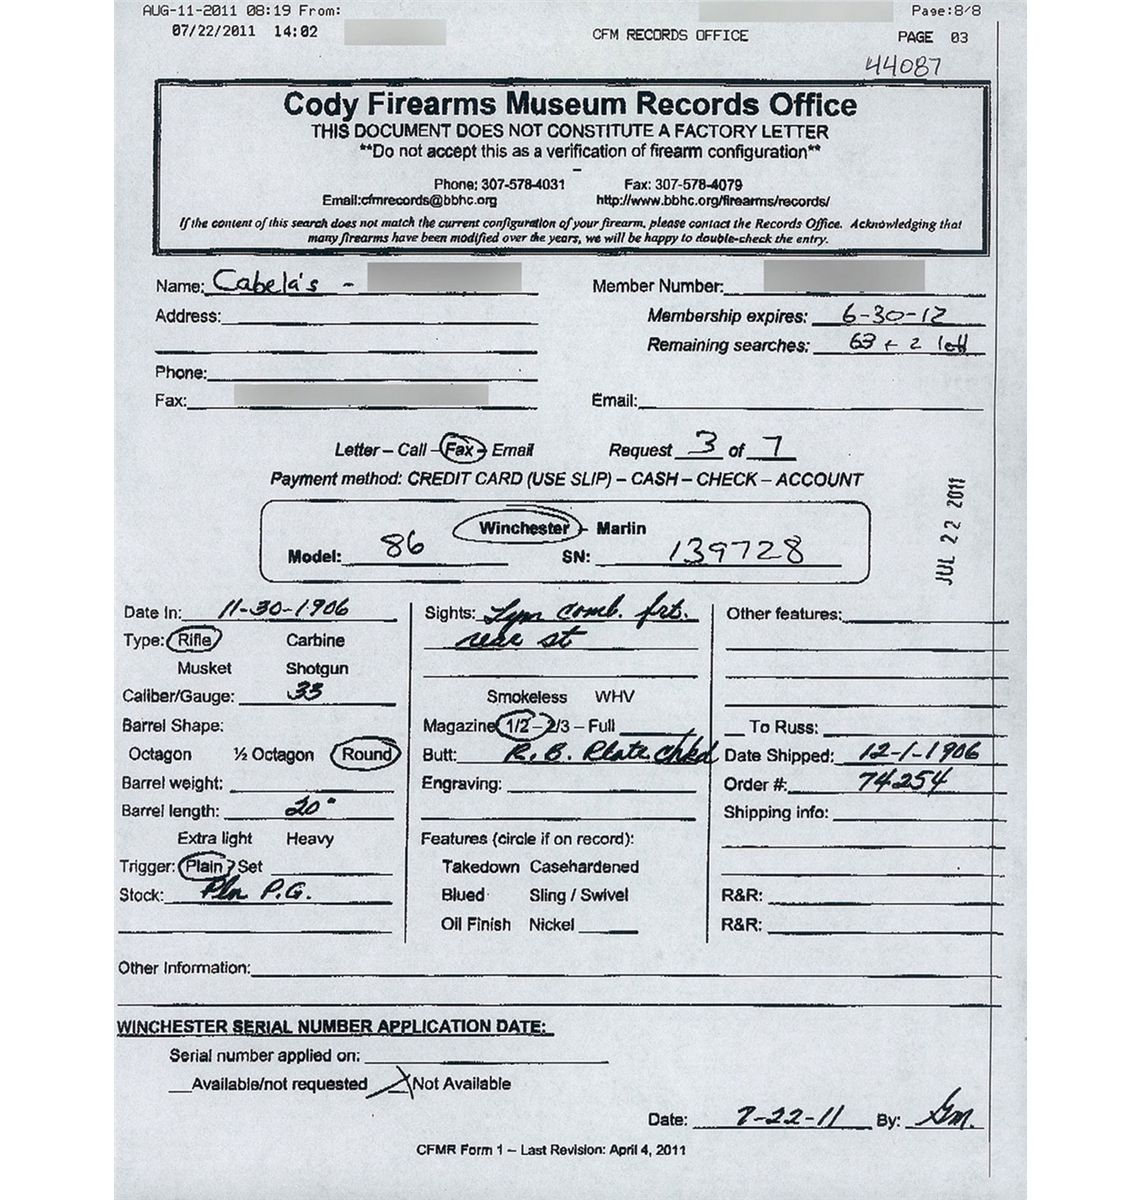 AUG-11-2011 08:19 From: Page:8/8
07/22/2011 14:02 CFM RECORDS OFFICE PAGE 03
44087
Cody Firearms Museum Records Office
THIS DOCUMENT DOES NOT CONSTITUTE A FACTORY LETTER
**Do not accept this as a verification of firearm configuration**
Phone: 307-578-4031 Fax: 307-578-4079
Email:cfmrecords@bbhc.org http://www.bbhc.org/firearms/records/
If the content of this search does not match the current configuration of your firearm, please contact the Records Office. Acknowledging that
many firearms have been modified over the years, we will be happy to double-check the entry.
Name: Cabela's - Member Number:
Address: Membership expires: 6-30-12
Remaining searches: 63 + 2 left
Phone:
Fax: Email:
Letter – Call – Fax – Email Request 3 of 7
Payment method: CREDIT CARD (USE SLIP) – CASH – CHECK – ACCOUNT
JUL 22 2011
Winchester - Marlin
Model: 86 SN: 139728
Date In: 11-30-1906
Type: Rifle Carbine
Musket Shotgun
Caliber/Gauge: 33
Barrel Shape:
Octagon ½ Octagon Round
Barrel weight:
Barrel length: 20"
Extra light Heavy
Trigger: Plain Set
Stock: Pln P.G.
Sights: Lym comb. frt.
rear st
Smokeless WHV
Magazine 1/2 – 2/3 – Full
Butt: R.B. Plate chkd
Engraving:
Features (circle if on record):
Takedown Casehardened
Blued Sling / Swivel
Oil Finish Nickel
Other features:
To Russ:
Date Shipped: 12-1-1906
Order #: 74254
Shipping info:
R&R:
R&R:
Other Information:
WINCHESTER SERIAL NUMBER APPLICATION DATE:
Serial number applied on:
Available/not requested Not Available
Date: 7-22-11 By: Gm.
CFMR Form 1 – Last Revision: April 4, 2011